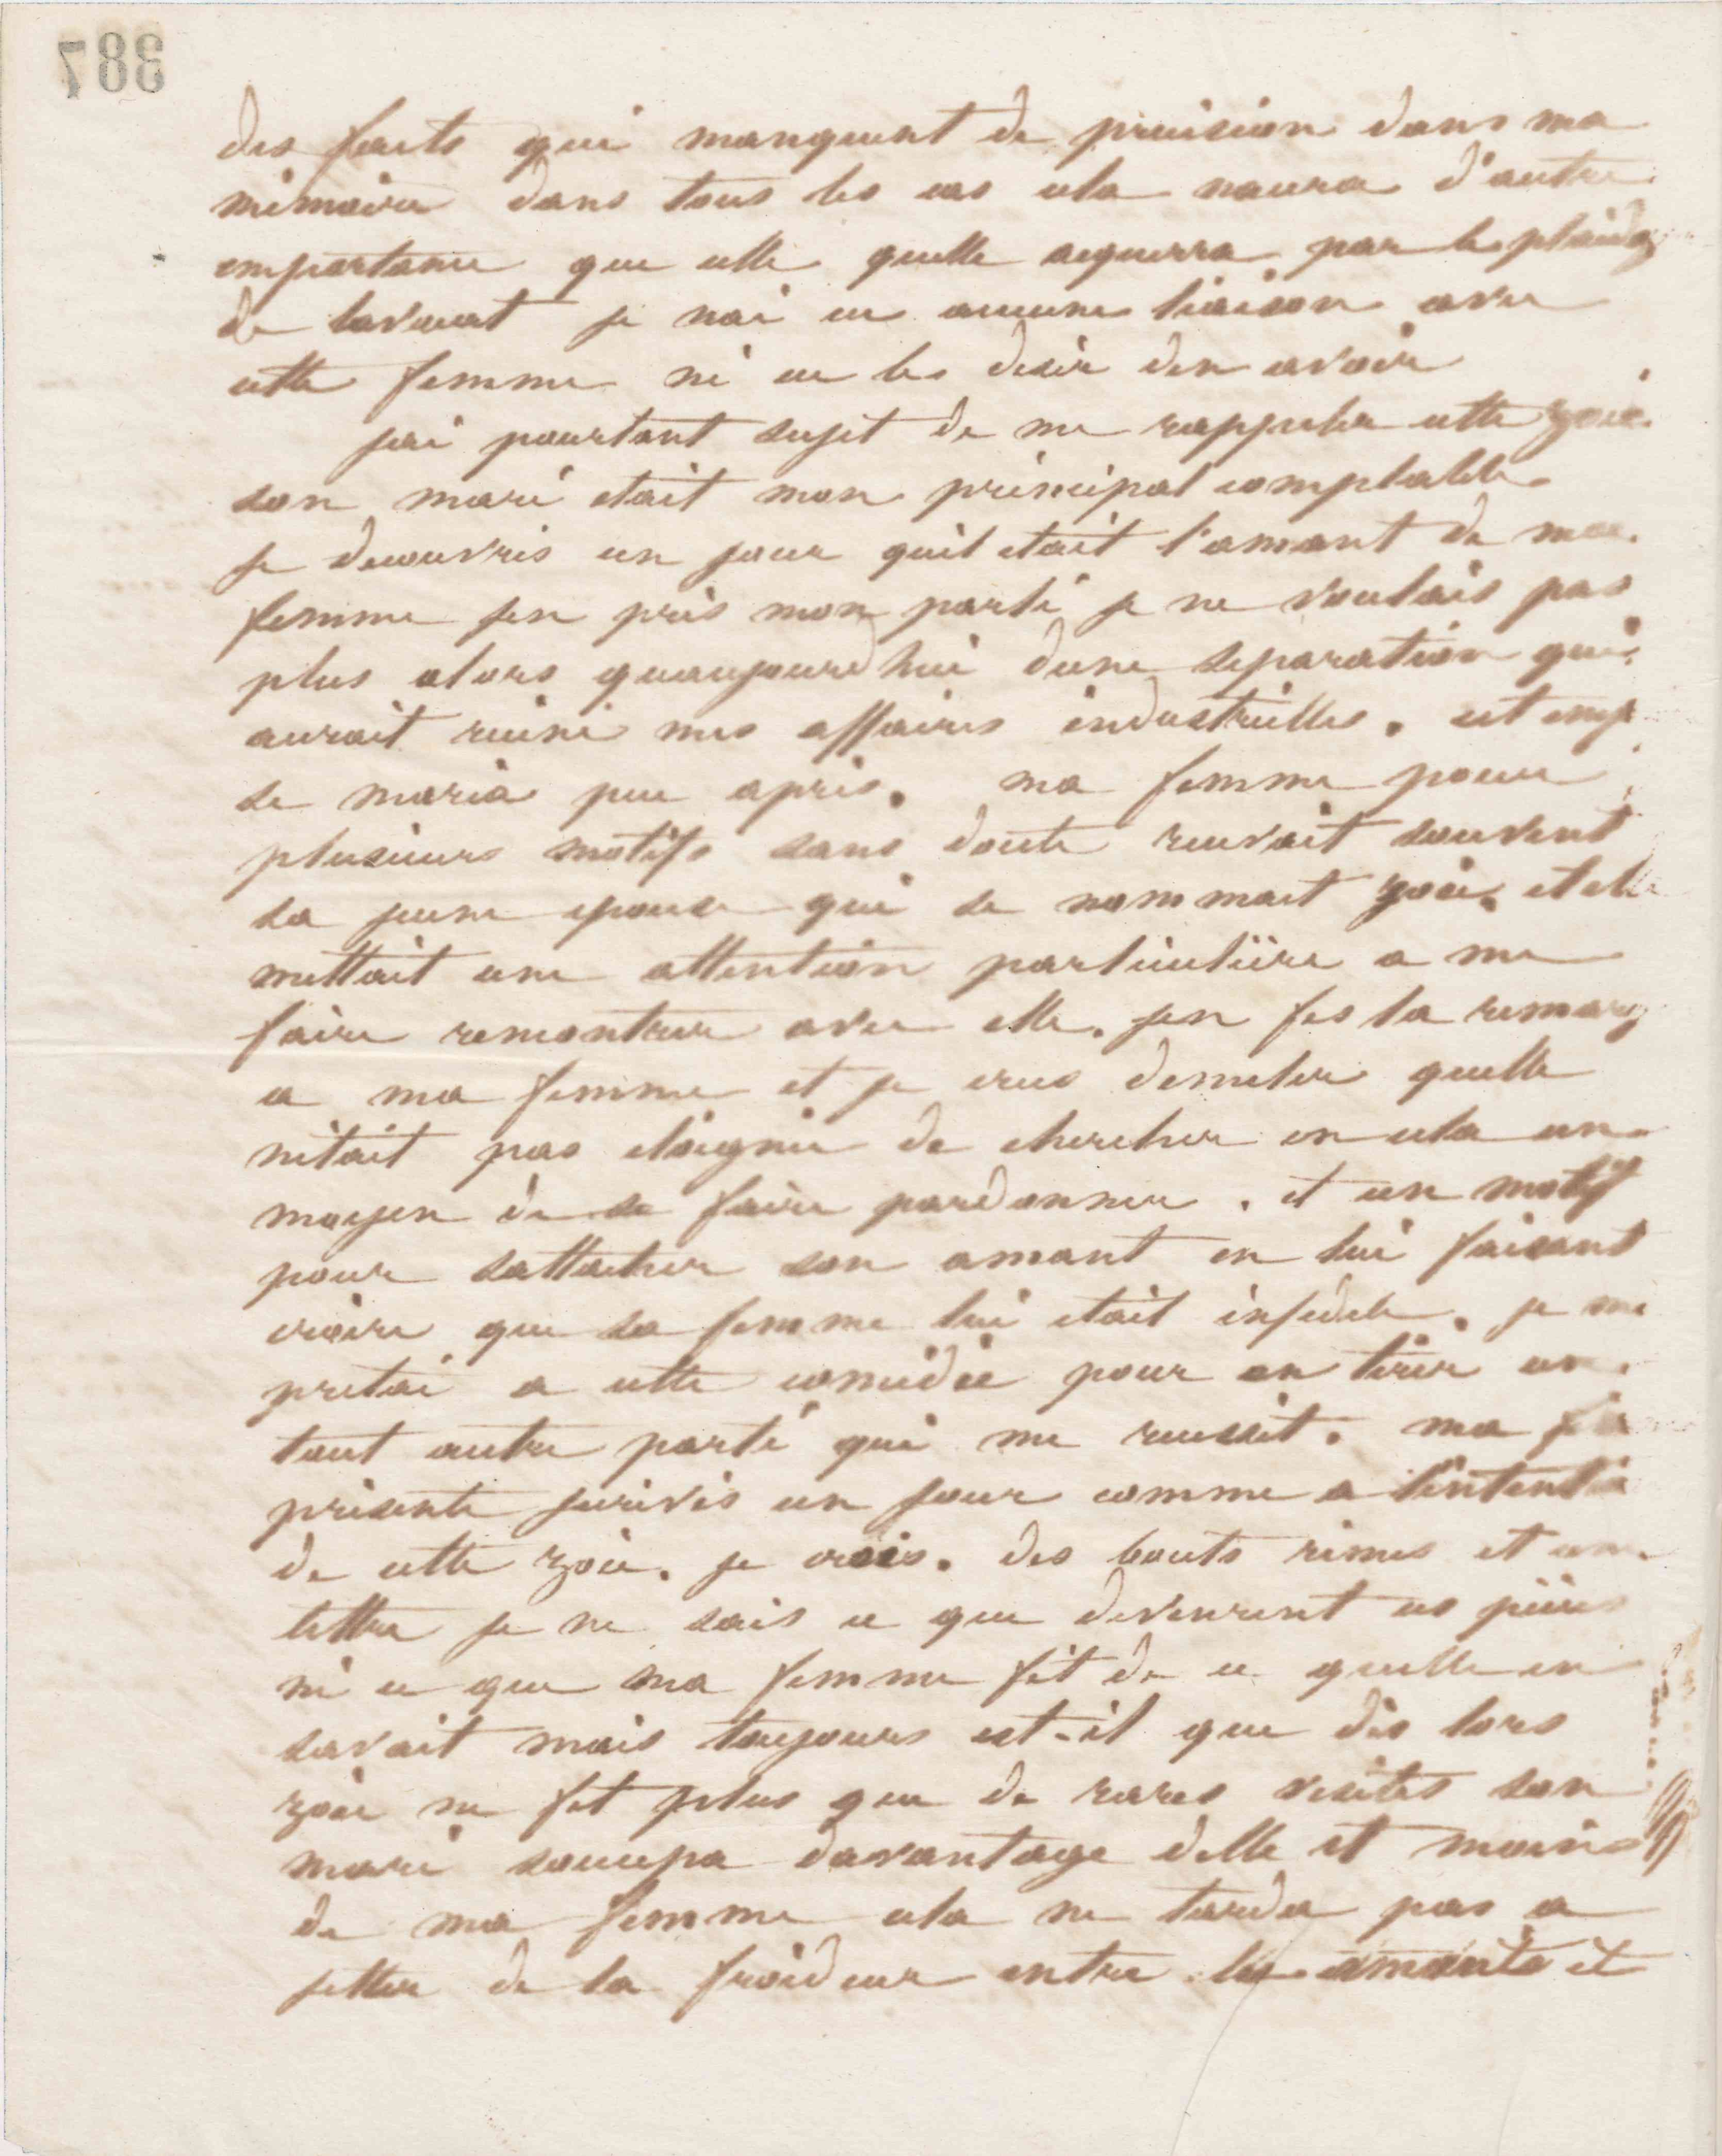 387
des faits qui manquent de precision dans ma
mémoire dans tous les cas cela naura d'autre
importance que celle quelle acquerra par le plaidoy
de lavocat je nai eu aucune liaison avec
cette femme ni eu le desir den avoir
jai pourtant sujet de me rappeler cette zoée
son mari etait mon principal comptable
je decouvris un jour quil etait l'amant de ma
femme jen pris mon parti je ne voulais pas
plus alors quaujourdhui dune separation qui
aurait ruiné mes affaires industrielles. cet emp
se maria peu après. ma femme pour
plusieurs motifs sans doute recevait souvent
sa jeune epouse qui se nommait zoée. et elle
mettait une attention particulière a me
faire remontrer avec elle. jen fis la remarq
a ma femme et je crus demeler quelle
nétait pas eloignée de chercher en cela un
moyen de se faire pardonner. et un motif
pour sattacher son amant en lui faisant
croire que sa femme lui etait infidele. je me
pretai a cette comédie pour en tirer un
tout autre parti qui me reussit. ma
présente jecrivis un jour comme a l'intenti
de cette zoée. je crois. des bouts rimés et une
lettre je ne sais ce que devenrent ces pièces
ni ce que ma femme fit de ce quelle en
savait mais toujours est-il que dès lors
zoée ne fit plus que de rares visites son
mari soccupa davantage delle et moins
de ma femme cela ne tarda pas a
jetter de la froideur entre les amants et